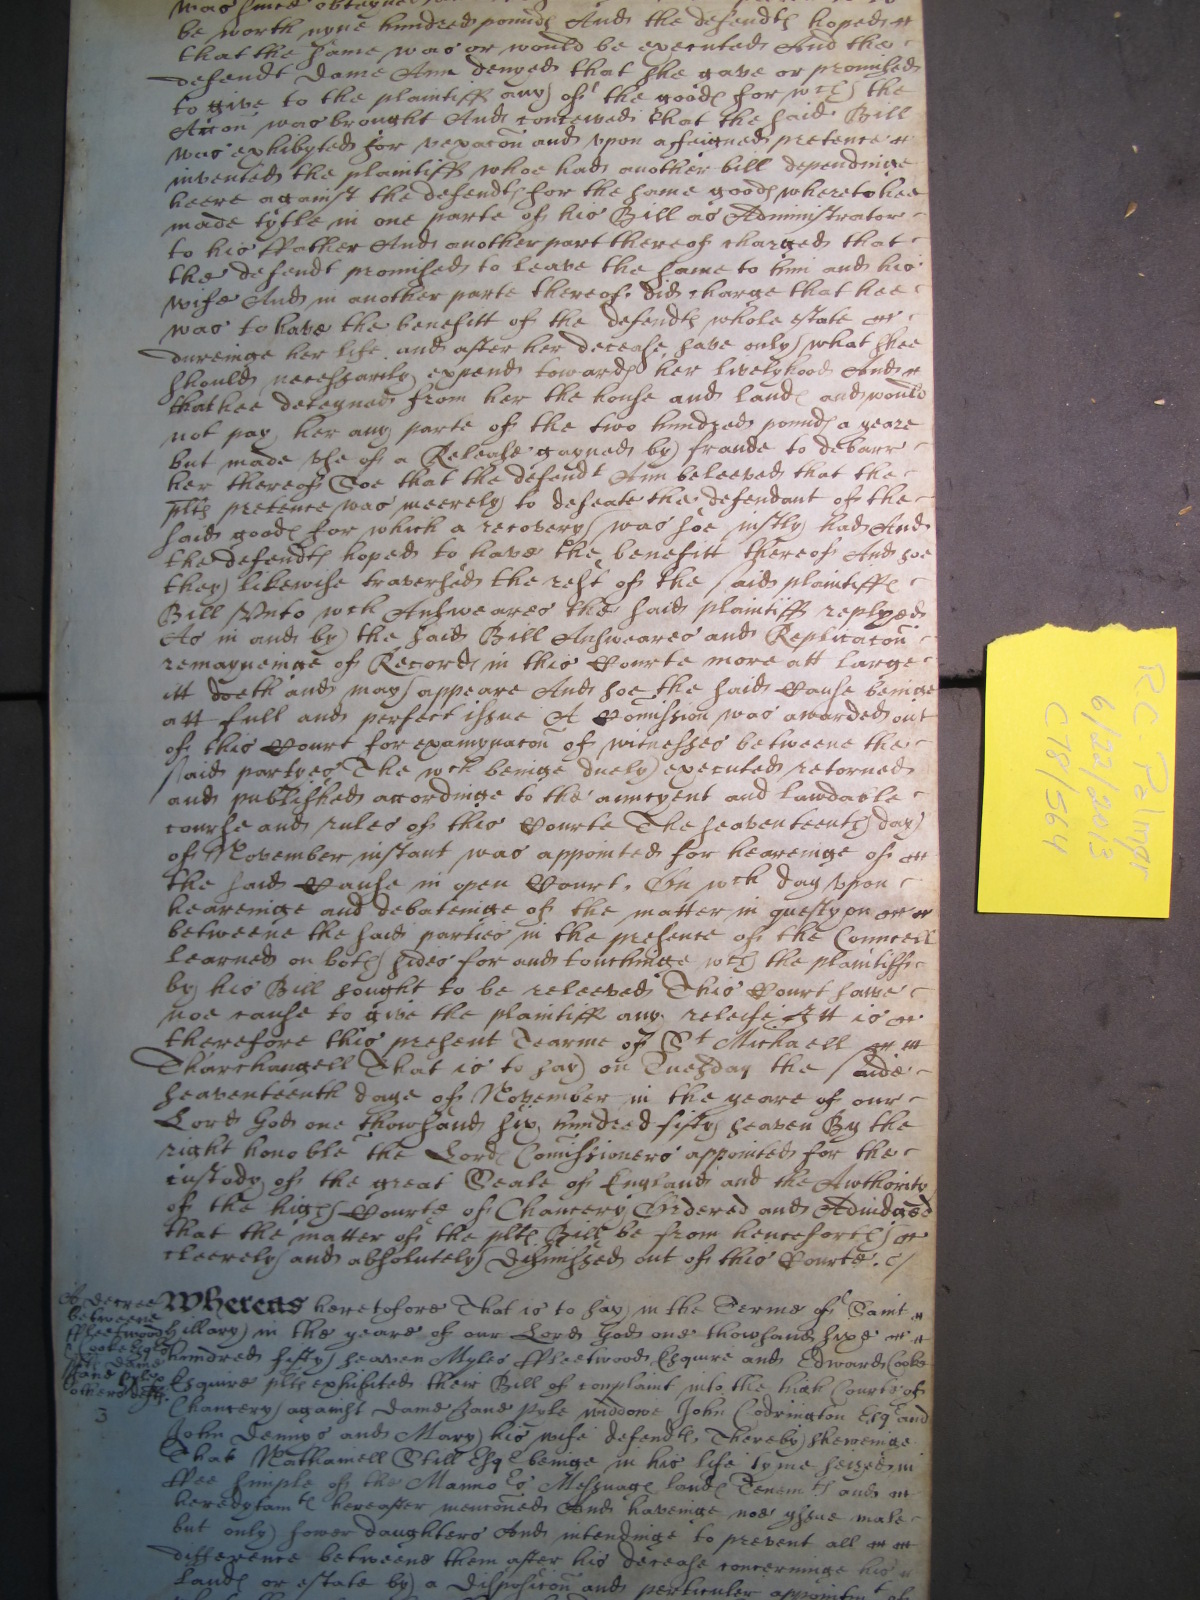 be worth nyne hundred pound And the defendt hoped
that the same was or would be executed And the
defendt Dame Ann denyed that she gave or promised
to give to the plaintiff any of the good for wch the
Accon was brought And conceived that the said Bill
was exhibyted for vexacon and upon a feigned pretence
invented the plaintiff whoe had another bill dependinge
heere against the defendt for the same good whereto hee
made tytle in one parte of his Bill as Administrator
to his ffather And another part thereof charged that
the defendt promised to leave the same to him and his
wife And in another parte thereof did charge that hee
was to have the benefitt of the defendt whole estate
dureinge her life and after her decease have only what shee
should necessarily expend toward her livelyhood And
that hee deteyned from her the house and land and would
not pay her any parte of the two hundred pound a yeare
but made use of a Release gayned by fraude to debarr
her thereof Soe that the defendt Ann beleeved that the
plts pretence was meerely to defeate the defendant of the
said good for which a recovery was soe justly had And
the defendt hoped to have the benefitt thereof And soe
they likewise traversed the rest of the said plaintiffe
Bill Unto wch Answeares the said plaintiff replyed
As in and by the said Bill Answeares and Replicacon
remayneinge of Record in this Courte more att large
itt doeth and may appeare And soe the said Cause beinge
att full and perfect issue A Comission was awarded out
of this Court for examynacon of witnesses betweene the
said partyes The wch beinge duely executed retorned
and published accordinge to the auncyent and laudable
course and rules of this Courte The seaventeenth day
of November instant was appointed for heareinge of
the said Cause in open Court. On wch day upon
heareinge and debateinge of the matter in questyon
betweene the said parties in the presence of the Councell
learned on both sides for and touchinge wch the plaintiffe
by his Bill sought to be releeved This Court have
noe cause to give the plaintiff any releife Itt is
therefore this present Tearme of St Michaell
Tharchangell That is to say on Tuesday the said
seaventeenth daye of November in the yeare of our
Lord God one thowsand six hundred fifty seaven By the
right honoble the Lord Comissioners appointed for the
custody of the great Seale of England and the Authority
of the high Courte of Chancery Ordered and Adjudged
that the matter of the plts Bill be from henceforth
cleerely and absolutely dismissed out of this Courte.
A decree
betweene
ffleetwood
& Cooke Esqrs
plts Dame
Jane Pyle &
others defts
3
Whereas heretofore That is to say in the Terme of Saint
Hillary in the yeare of our Lord God one thowsand sixe
hundred fifty seaven Myles ffleetwood Esquire and Edward Cooke
Esquire plts exhibited their Bill of complaint into the high Courte of
Chancery against Dame Jane Pyle widdowe John Codrington Esqr and
John Dennys and Mary his wife defendts Thereby sheweinge
That Nathaniell Still Esqr beinge in his life tyme seized in
ffee simple of the Mannors Messuage land Tenemts and
heredytamts hereafter mencioned And haveinge noe yssue male
but only fower daughters And intendinge to prevent all
difference betweene them after his decease concerninge his
land or estate by a disposicon and perticuler appointmt of
R.C. Palmer
6/22/2013
C78/564